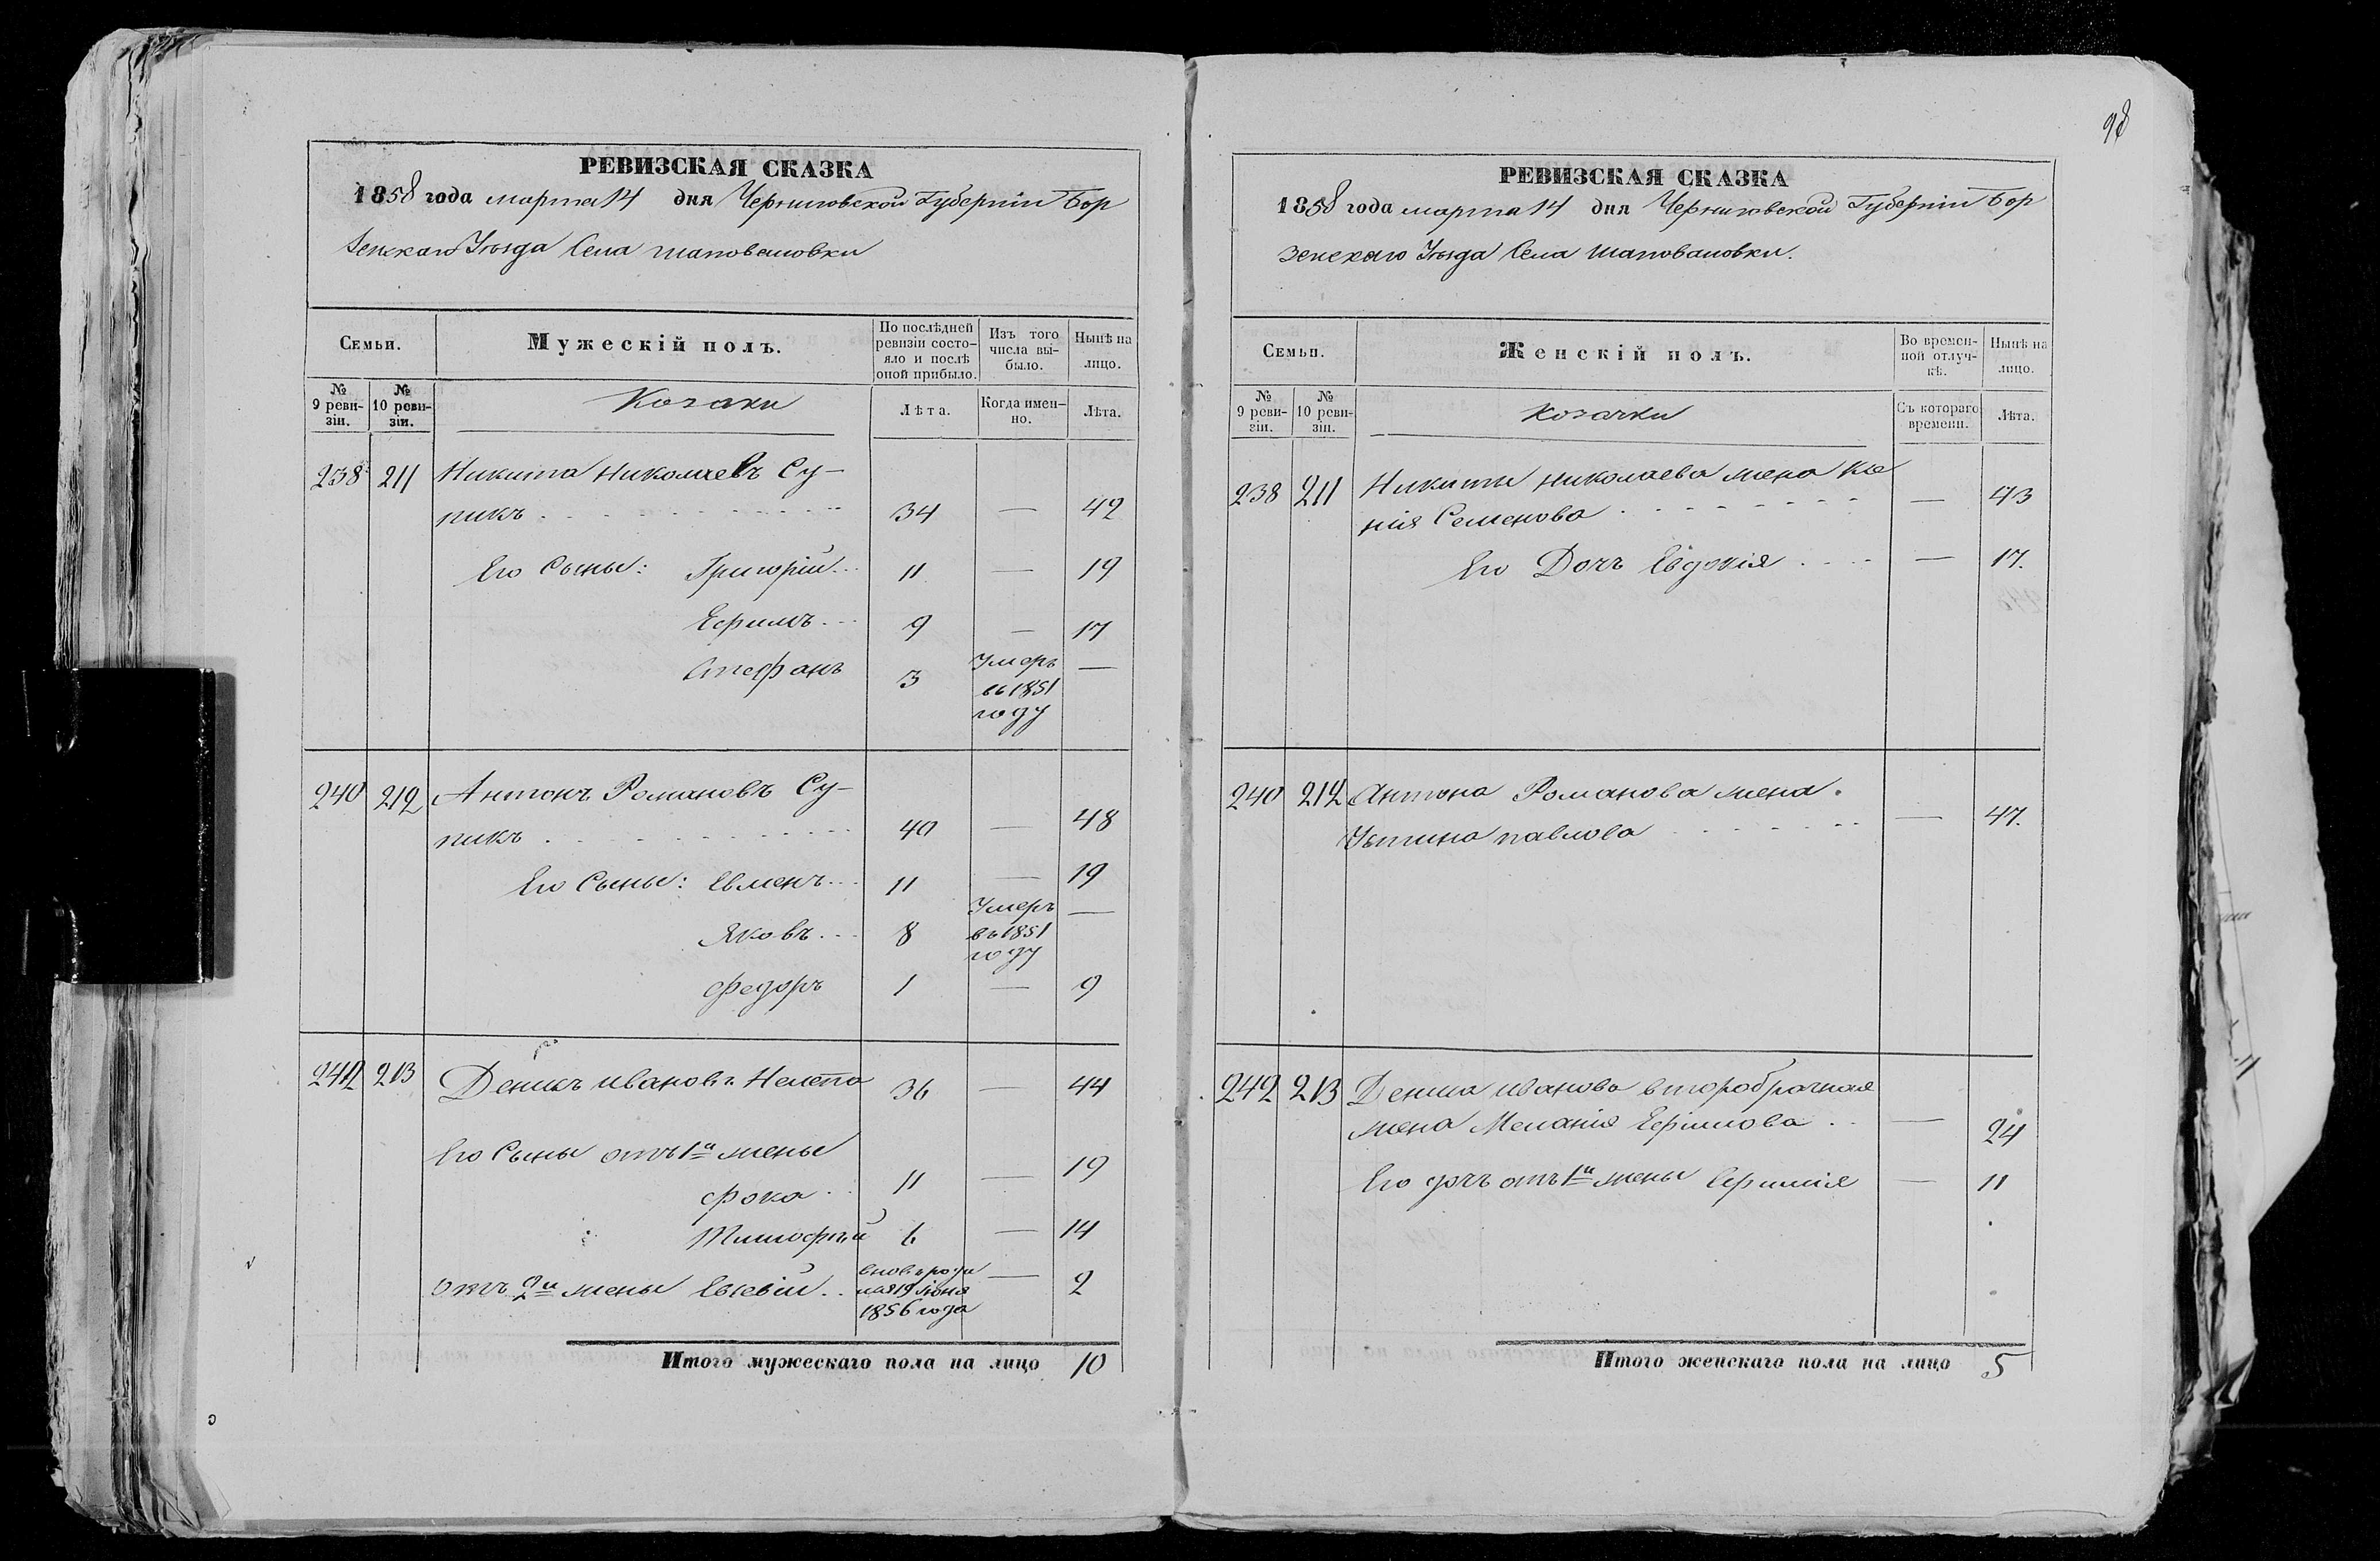 РЕВИЗСКАЯ СКАЗКА
1858 года марта 14 дня Черниговской Губерніи Бор
зенскаго Уѣзда Села Шаповаловки
Семьи.
Мужескій полъ.
По послѣдней ревизіи состояло и послѣ оной прибыло.
Изъ того числа выбыло.
Нынѣ на лицо.
№ 9 ревизіи.
№ 10 ревизіи.
Козаки
Лѣта.
Когда именно.
Лѣта.
238 211 Никита Николаевъ Су-
пикъ 34 — 42
Его Сыны: Григорій 11 — 19
Ефимъ 9 — 17
Стефанъ 3 Умеръ въ 1851 году —
240 212 Антонъ Романовъ Су-
пикъ 40 — 48
Его Сыны: Евменъ 11 — 19
Яковъ 8 Умеръ въ 1851 году —
Федоръ 1 — 9
242 213 Денисъ Ивановъ Нелепа 36 — 44
Его Сыны отъ 1й жены
Фока 11 — 19
Тимофѣй 6 — 14
Отъ 2й жены Евсевій 1856 года — 2
Итого мужескаго пола на лицо 10
98
РЕВИЗСКАЯ СКАЗКА
1858 года марта 14 дня Черниговской Губерніи Бор
зенскаго Уѣзда Села Шаповаловки.
Семьи.
Женскій полъ.
Во временной отлучкѣ.
Нынѣ на лицо.
№ 9 ревизіи.
№ 10 ревизіи.
Козачки
Съ котораго времени.
Лѣта.
238 211 Никиты Николаева жена Ксе
нія Семенова — 43
Его Дочъ Евдокія — 17.
240 212 Антона Романова жена
Устина Павлова — 47.
242 213 Дениса Иванова второбрачная
жена Меланія Ефимова — 24
Его дочъ отъ 1й жены Ефимія — 11
Итого женскаго пола на лицо 5